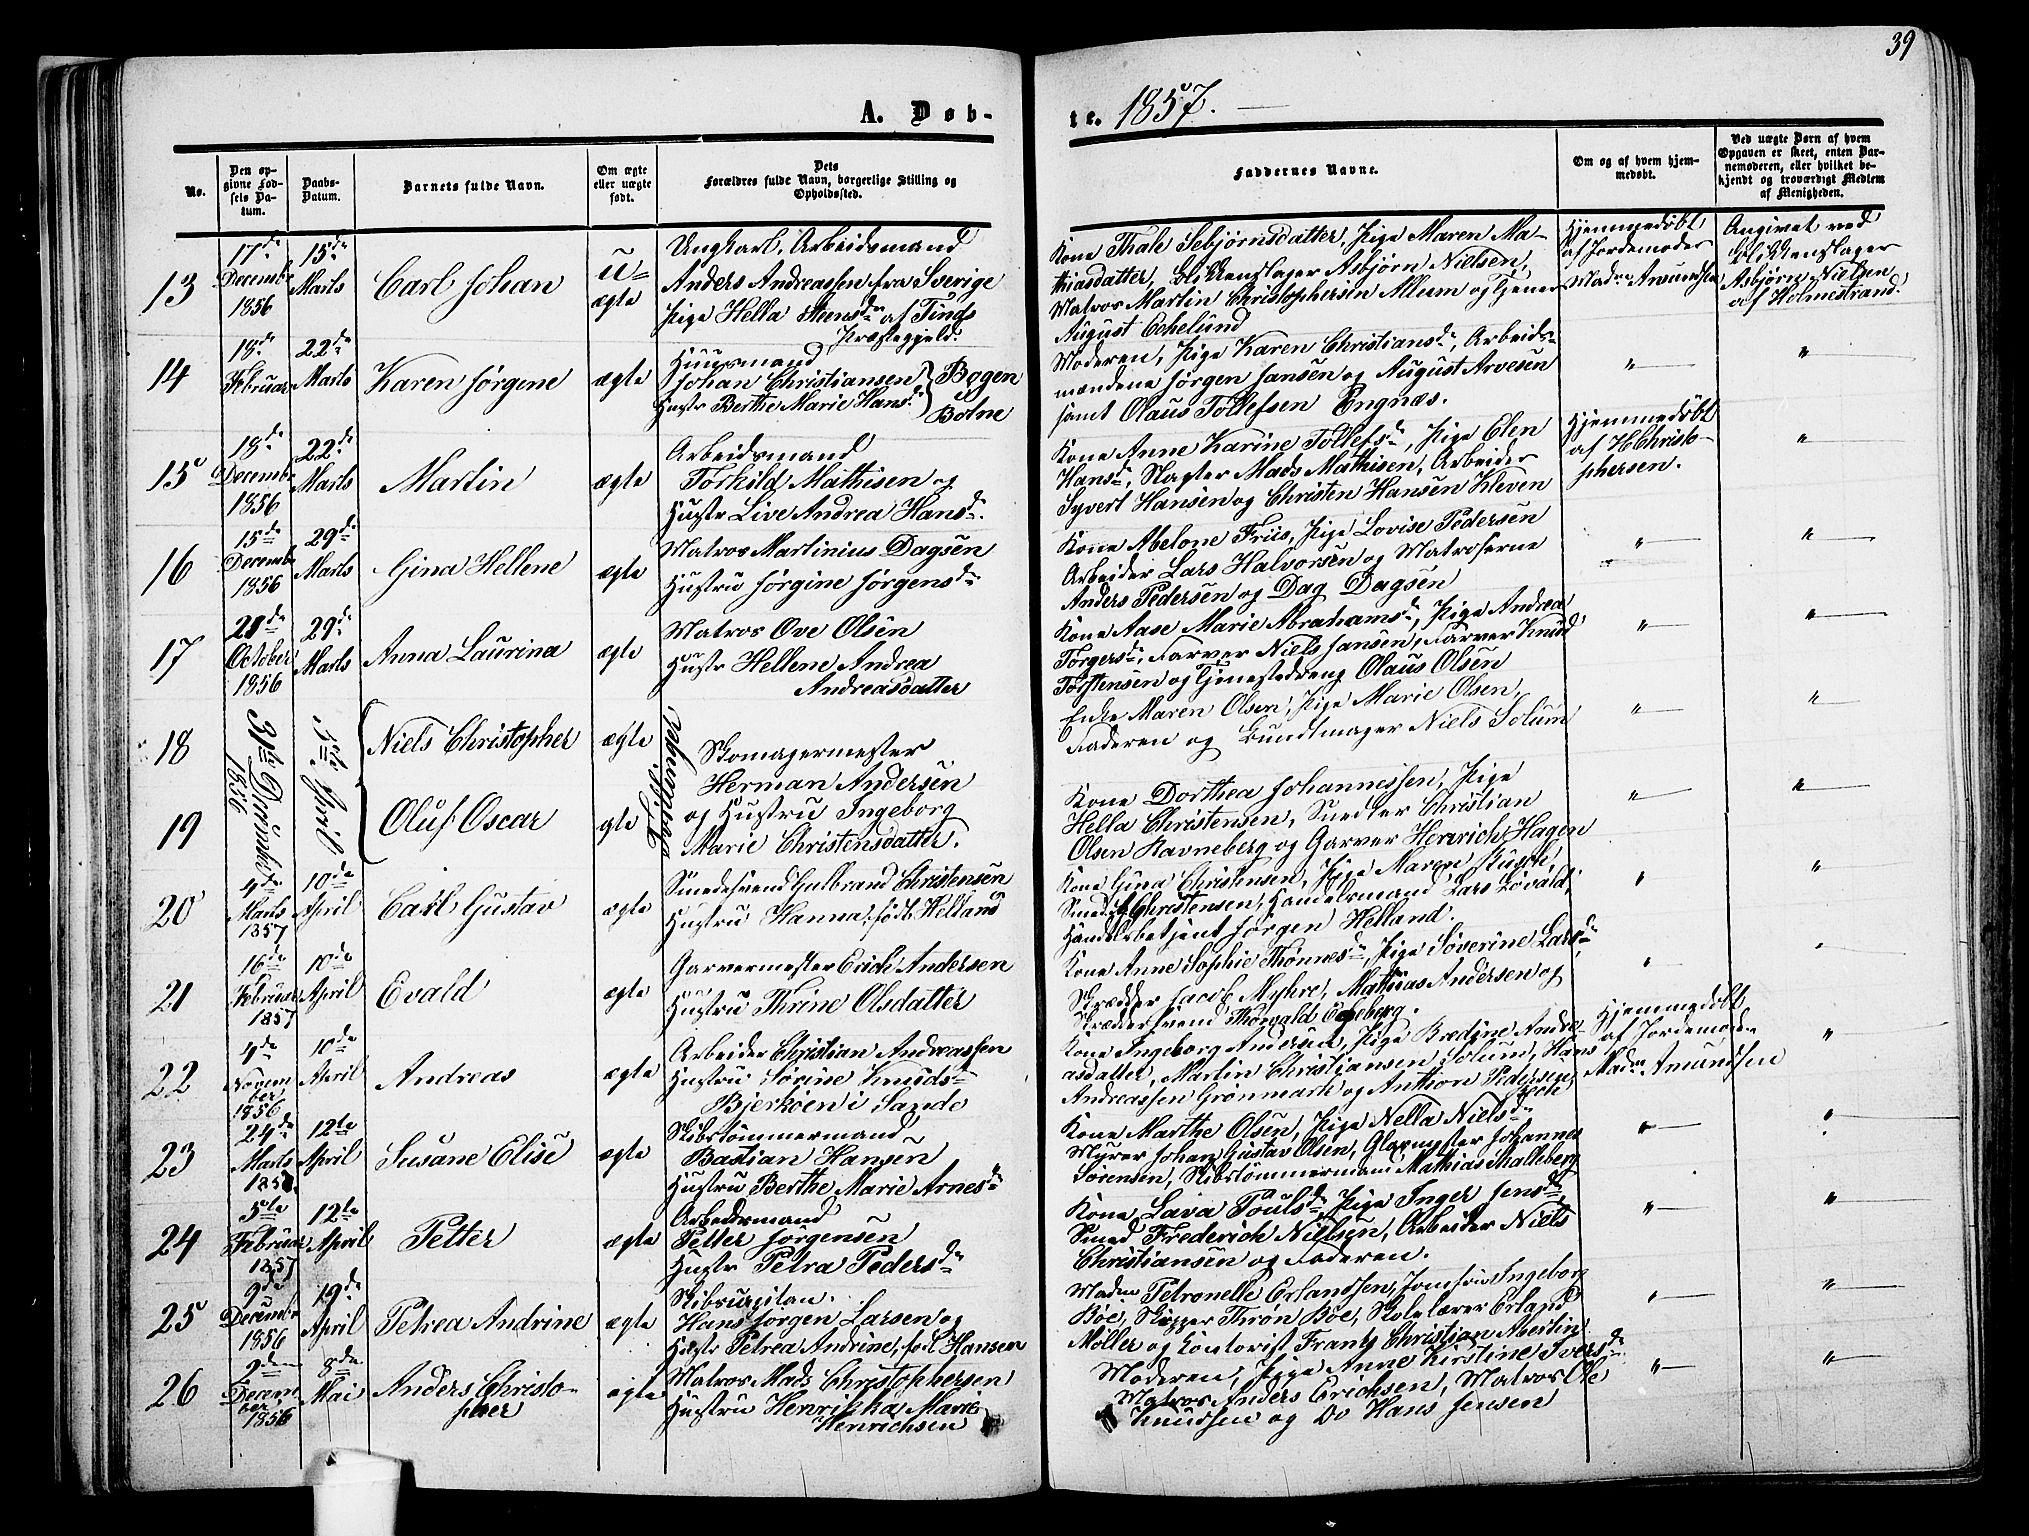 39
A. Døb-
te. 1857.
No.
Den op-
givne Fød-
sels Da-
tum.
Daabs-
Datum.
Barnets fulde Navn.
Om ægte
eller uægte
født.
Dets
Forældres fulde Navn, borgerlige Stilling og
Opholdssted.
Faddernes Navne.
Om og af hvem hjem-
medøbt.
Ved uægte Børn af hvem
Opgaven er skeet, enten Bar-
nemoderen, eller hvilket be-
kjendt og troværdigt Medlem
af Menigheden.
13
17de
Decembr
1856
15de
Marts
Carl Johan
u-
ægte
Ungkarl, Arbeidsmand
Anders Andreassen fra Sverige
Pige Hella Steensdr af Tinds
Præstegjeld.
Kone Thale Sebjørnsdatter, Pige Maren Ma-
thiasdatter, Blikkenslager Asbjørn Nielsen,
Matros Martin Christophersen Allum og Tjener
August Echelund
Hjemmedøbt
af Jordemoder
Madm Amundsen
Angivet ved
Blikkenslager
Asbjørn Nielsen
af Holmestrand.
14
18de
Februar
22de
Marts
Karen Jørgene
ægte
Huusmand
Johan Christiansen
Hustr Berthe Marie Hansdr
Bogen
Botne
Moderen, Pige Karen Christiansdr, Arbeids-
mændene Jørgen Jansen og August Arvesen
samt Olaus Tollefsen Engnæs.
"
"
15
18de
Decembr
1856
22de
Marts
Martin
ægte
Arbeidsmand
Torkild Mathisen og
Hustr Live Andrea Hansdr.
Kone Anne Karine Tollefsdr, Pige Elen
Hansdr, Slagter Mads Mathisen, Arbeider
Syvert Hansen og Christen Hansen Kleven
Hjemmedøbt
af H Christo-
phersen.
"
16
15de
Decembr
1856
29de
Marts
Gina Hellene
ægte
Matros Martinius Dagsen
Hustru Jørgine Jørgensdr
Kone Abelone Friis, Pige Lovise Pedersen
Arbeider Lars Halvorsen og Matroserne
Anders Pedersen og Dag Dagsen
"
"
17
21de
October
1856
29de
Marts
Anna Laurina
ægte
Matros Ove Olsen
Hustr Hellene Andrea
Andreasdatter
Kone Aase Marie Abrahamsdr, Pige Andrea
Torgersdr, Farver Niels Jansen, Farver Knud
Torstensen og Tjenestedreng Olaus Olsen
"
"
18
31te Decembr
1856
5te April
Niels Christopher
ægte
Skomagermester
Herman Andersen
og Hustru Ingeborg
Marie Christensdatter.
Enke Maren Olsen, Pige Marie Olsen,
Faderen og Bundtmager Niels Solum
"
"
19
Oluf Oscar
ægte
Kone Dorthea Johannessen, Pige
Hella Christensen, Snedker Christian
Olsen Ravneberg og Garver Henrich Hagen
"
"
20
4de
Marts
1857
10de
April
Carl Gustav
ægte
Smedesvend Gulbrand Christensen
Hustru Hanna, født Helland
Kone Gina Christensen, Pige Maren Rusch,
Smed Christensen, Handelsmand Lars Løvald,
Handelsbetjent Jørgen Helland.
"
"
21
16de
Februar
1857
10de
April
Evald
ægte
Garvermester Erich Andersen
Hustru Thrine Olsdatter
Kone Anne Sophie Thønnesdr, Pige Søverine Larsdr,
Skrædder Jacob Myhre, Mathias Andersen og
Skræddersvend Thorvald Egeberg.
"
"
22
4de
Novem
ber
1856
10de
April
Andreas
ægte
Arbeider Christian Andreassen
Hustru Sørine Knuds-
Bjerkøen i Sande
Kone Ingeborg Andersen, Pige Bredine Andre-
asdatter, Martin Christiansen Solum, Hans
Andreassen Grønmark og Anthon Pedersen
Hjemmedøbt
af Jordemode-
Madm Amundsen
"
23
24de
Marts
1857
12te
April
Susane Elise
ægte
Skibstømmermand
Bastian Hansen
Hustru Berthe Marie Arnesdr
Kone Marthe Olsen, Pige Nella Nielsdr
Murer Johan Gustav Olsen, Glarmester Johannes
Sørensen, Skibstømmermand Mathias Skalleberg
"
"
24
5te
Februar
1857
12te
April
Petter
ægte
Arbeidsmand
Petter Jørgensen
Hustr Petra Pedersdr
Kone Lava Poulsdr, Pige Inger Jensdr,
Smed Frederich Nielsen, Arbeider Niels
Christiansen og Faderen.
"
"
25
9de
Decembr
1856
19de
April
Petrea Andrine
ægte
Skibscapitan.
Hans Jørgen Larsen og
Hustr Petrea Andrine, født Hansen
Madm Petronelle Erlandsen, Jomfru Ingeborg
Bøe, Skipper Thrøn Bøe, Skolelærer Erland
Møller og Contorist Frantz Christian Abertin,
"
"
26
2den
Decem
ber
1856
8de
Mai
Anders Christo-
pher
ægte
Matros Mads Christophersen
Hustru Henrikka Marie
Henrichsen
Moderen, Pige Anne Kirstine Iversdr
Matros Anders Erichsen, Matros Ole
Knudsen og Do Hans Jensen
"
"